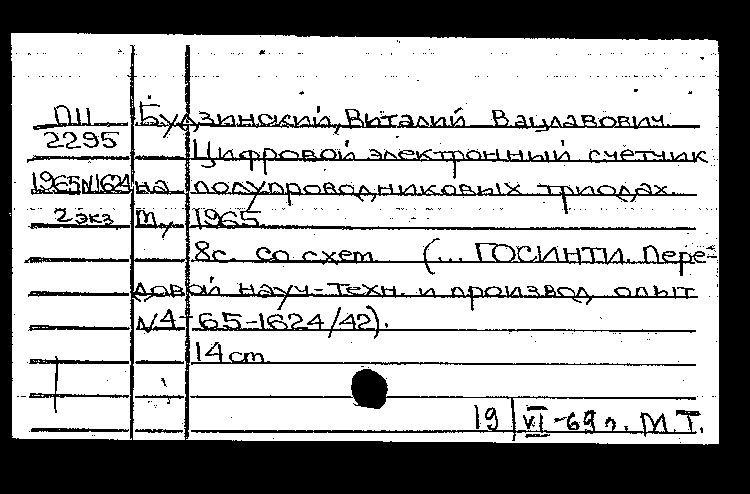 П11 Будзинский, Виталий Вацлавович.
2295 Цифровой электронный счетчик
1965N1624 на полупроводниковых триодах.
2 экз М., 1965.
8с. со схем. (... ГОСИНТИ. Пере-
довой науч.-техн. и производ. опыт
N4-65-1624/42).
14 cm.
19/VI-69 г. М.Т.